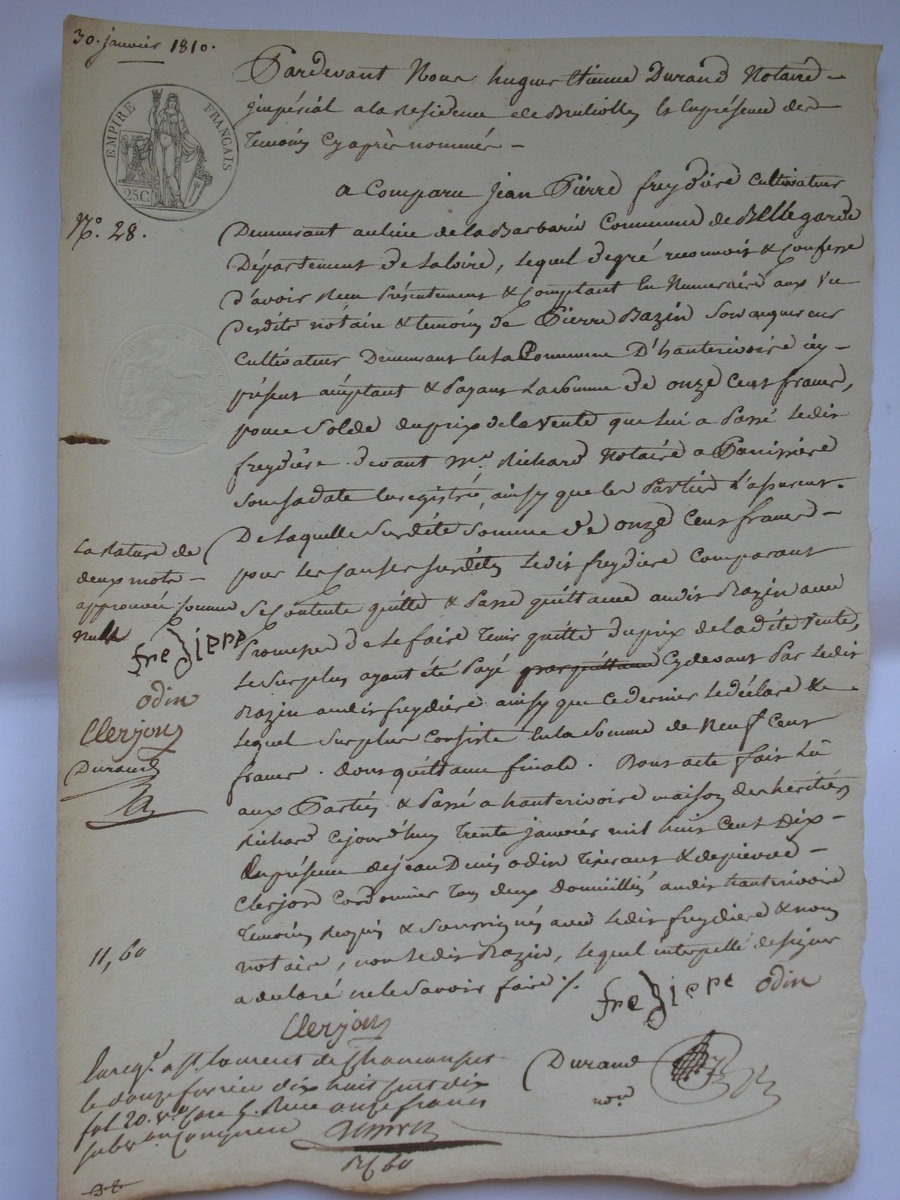 30. janvier 1810.
EMPIRE FRANÇAIS
25C
Nº. 28.
Pardevant Nous hugues Etienne Durand Notaire
jmpérial a la Residence de Brulliolles Et En présence des
Temoins Cy après nommés
a Comparu Jean Pierre freydière Cultivateur
Demeurant au lieu de la Barbarie Commune de Bellegarde
Département de la loire, lequel de gré reconnoit & Confesse
d'avoir Reçu Présentement & Comptant En Numeraire aux vu
desdits notaire & temoins de Pierre Bazin Son acquereur
Cultivateur Demeurant En la Commune D'hauterivoire icy
présent acceptant & Payant La Somme de onze Cent francs,
pour Solde du prix de la vente que lui a Passé ledit
freydière devant Me. Richard Notaire a
Sous sa date Enregistré, ainsy que les Parties L'assurent.
De laquelle Susdite Somme de onze Cent francs
pour les Causes Susdites ledit freydière Comparant
Se Contente quitte & Passe quittance audit Bazin avec
Promesse de le faire Tenir quitte du prix de ladite vente,
le Surplus ayant été Payé par quittance Cy devant Par ledit
Bazin audit freydière ainsy que ce dernier le déclare &
lequel Surplus Consiste En la Somme de Neuf Cent
francs. dont quittance finale. Dont acte fait Lû
aux Parties & Passé a hauterivoire maison des heritiers
Richard Cejourd'huy Trente janvier mil huit Cent Dix
En présence de jean Denis odin & de pierre
Clerjon Cordonnier Tous deux Domicilliés audit hauterivoire
Temoins Requis & Soussignés avec ledit freydière & nous
notaire, non ledit Bazin, lequel interpellé de signer
a declaré ne le Savoir faire ./.
La Rature de
deux mots
approuvée Comme
nulle
freDierre
odin
Clerjon
Durand
11,60
freDierre odin
Clerjon
Durand
nore
Enregé. a St. Laurent de Chamousset
le douze fevrier dix huit cent dix
fol 20. vo Case 5. Reçu onze francs